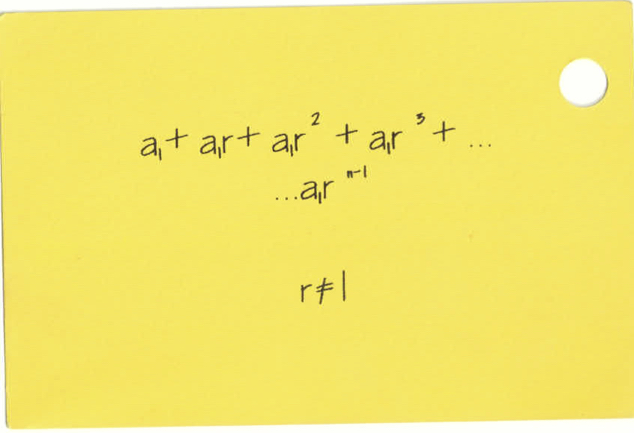 a₁+ a₁r+ a₁r² + a₁r³ + ...
...a₁rⁿ⁻¹
r≠1